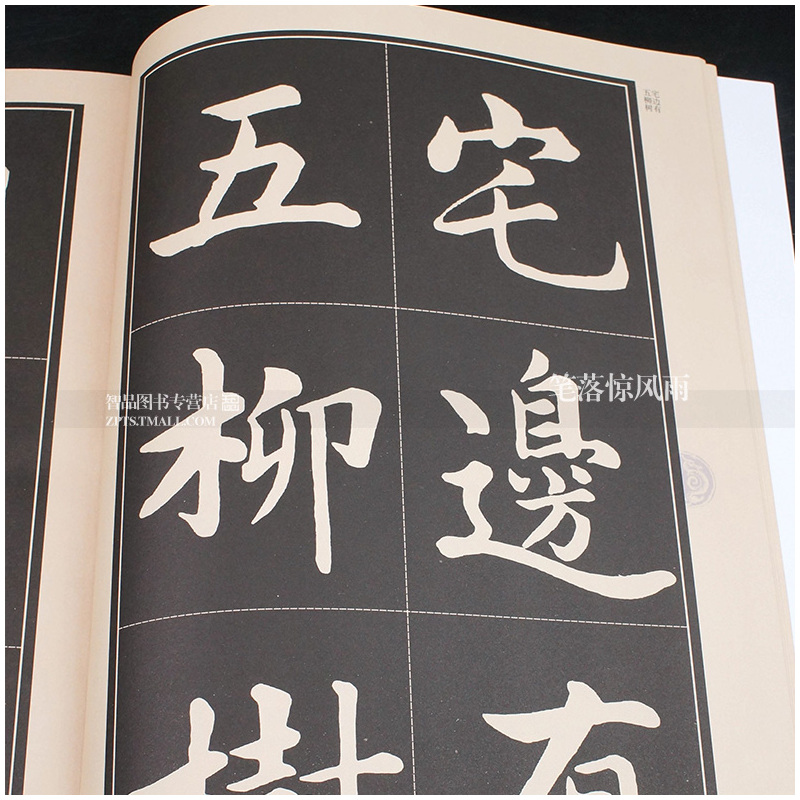 宅邊有
五柳樹
宅边有
五柳树
笔落惊风雨
智品图书专营店
ZPTS.TMALL.COM